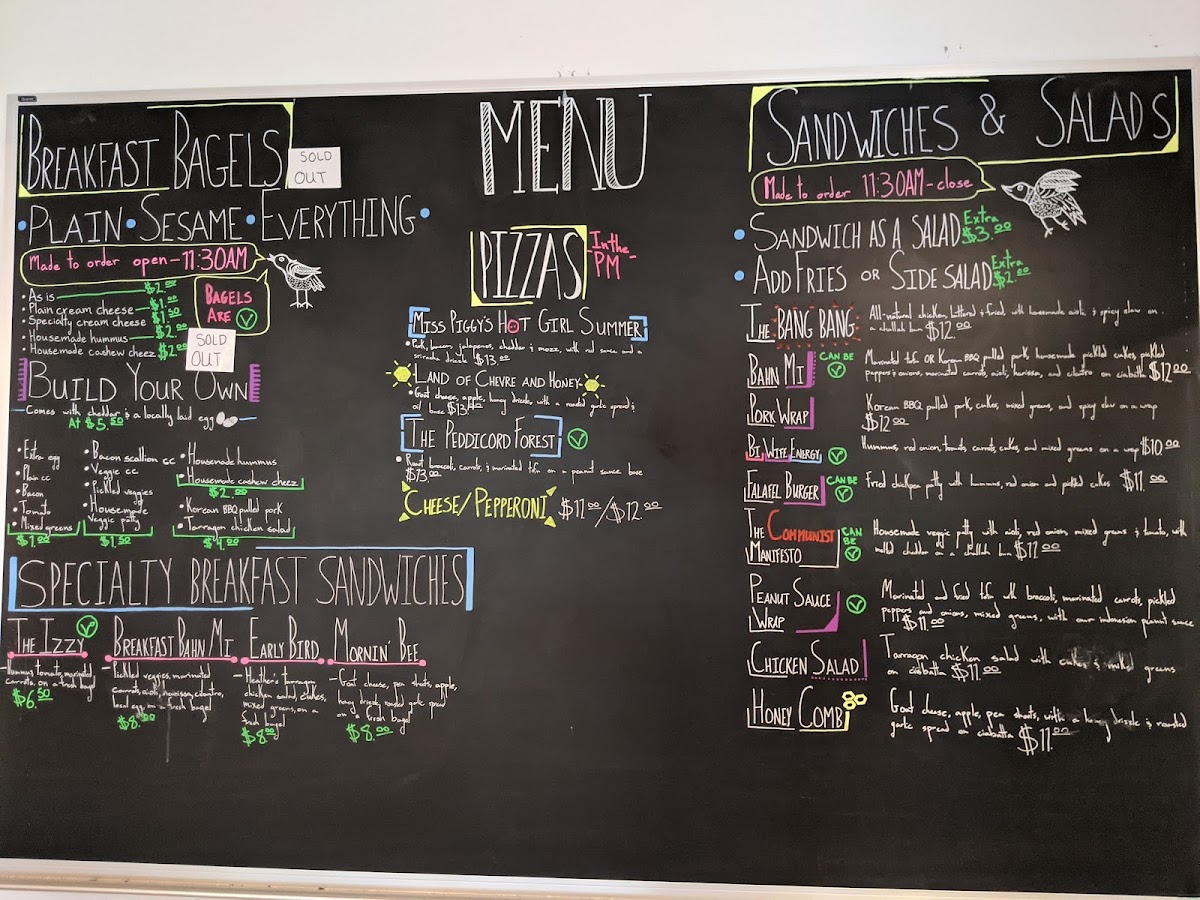 MENU
BREAKFAST BAGELS
SOLD OUT
• PLAIN • SESAME • EVERYTHING •
Made to order open-11:30AM
BAGELS ARE V
• As is $2.00
• Plain cream cheese $1.00
• Specialty cream cheese $1.50
• Housemade hummus $2.00
• Housemade cashew cheez $2.00
SOLD OUT
BUILD YOUR OWN
Comes with cheddar & a locally laid egg
At $5.50
• Extra egg
• Plain cc
• Bacon
• Tomato
• Mixed greens
$1.00
• Bacon scallion cc
• Veggie cc
• Pickled veggies
• Housemade
Veggie patty
$1.50
• Housemade hummus
• Housemade cashew cheez
$2.00
• Korean BBQ pulled pork
• Tarragon chicken salad
$4.00
SPECIALTY BREAKFAST SANDWICHES
THE IZZY V
- Hummus, tomato, marinated
carrots, on a fresh bagel
$6.50
BREAKFAST BAHN MI
- Pickled veggies, marinated
carrots, aioli, harissa, cilantro,
local egg, on a fresh bagel
$8.00
EARLY BIRD
- Heather's tarragon
chicken salad, cukes,
mixed greens, on a
fresh bagel
$8.00
MORNIN' BEE
- Goat cheese, pea shoots, apple,
honey drizzle, roasted garlic spread
on a fresh bagel
$8.00
PIZZAS
In the PM
MISS PIGGY'S HOT GIRL SUMMER
• Pork, bacon, jalapenos, cheddar & mozz, with red sauce and a
sriracha drizzle $13.00
LAND OF CHEVRE AND HONEY
• Goat cheese, apple, honey drizzle, with a roasted garlic spread &
oil base $13.00
THE PEDDICORD FOREST V
• Roast broccoli, carrots, & marinated tofu on a peanut sauce base
$13.00
CHEESE/PEPPERONI $11.00/$12.00
SANDWICHES & SALADS
Made to order 11:30AM-close
• SANDWICH AS A SALAD Extra $3.00
• ADD FRIES OR SIDE SALAD Extra $2.00
THE BANG BANG
All-natural chicken, battered & fried, with housemade aioli, & spicy slaw on
a challah bun $12.00
BAHN MI CAN BE V
Marinated tofu OR Korean BBQ pulled pork, housemade pickled cukes, pickled
peppers & onions, marinated carrots, aioli, harissa, and cilantro on ciabatta $12.00
PORK WRAP
Korean BBQ pulled pork, cukes, mixed greens, and spicy slaw on a wrap
$12.00
BI WIFE ENERGY V
Hummus, red onion, tomato, carrots, cukes, and mixed greens on a wrap $10.00
FALAFEL BURGER CAN BE V
Fried chickpea patty with hummus, red onion and pickled cukes $11.00
THE COMMUNIST MANIFESTO CAN BE V
Housemade veggie patty with aioli, red onion, mixed greens & tomato, with
melted cheddar on a challah bun $11.00
PEANUT SAUCE WRAP V
Marinated and fried tofu with broccoli, marinated carrots, pickled
peppers and onions, mixed greens, with our indonesian peanut sauce
$11.00
CHICKEN SALAD
Tarragon chicken salad with cukes & mixed greens
on ciabatta $11.00
HONEY COMB
Goat cheese, apple, pea shoots, with a honey drizzle & roasted
garlic spread on ciabatta $11.00